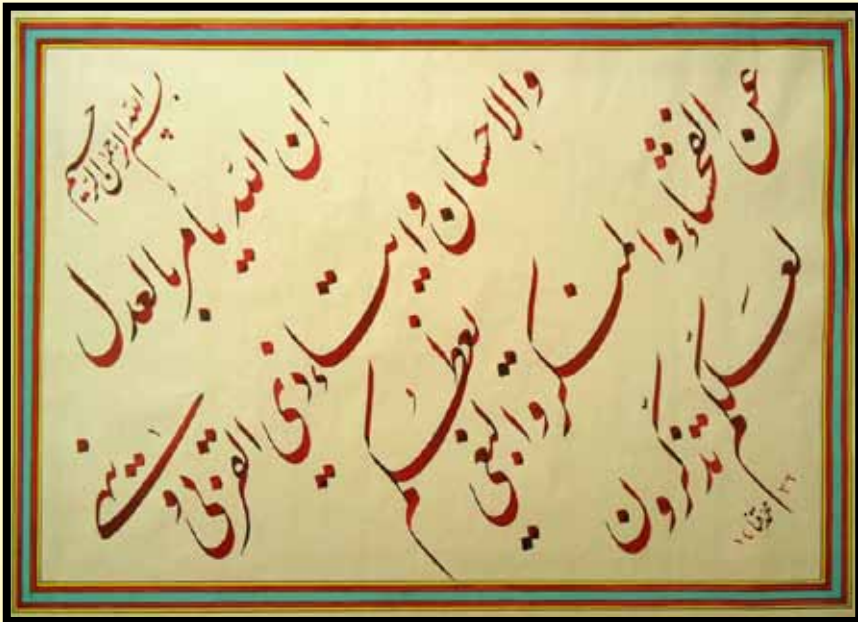 بسم الله الرحمن الرحيم
إن الله يأمر بالعدل
والإحسان وإيتاء ذي القربى وينهى
عن الفحشاء والمنكر والبغي يعظكم
لعلكم تذكرون